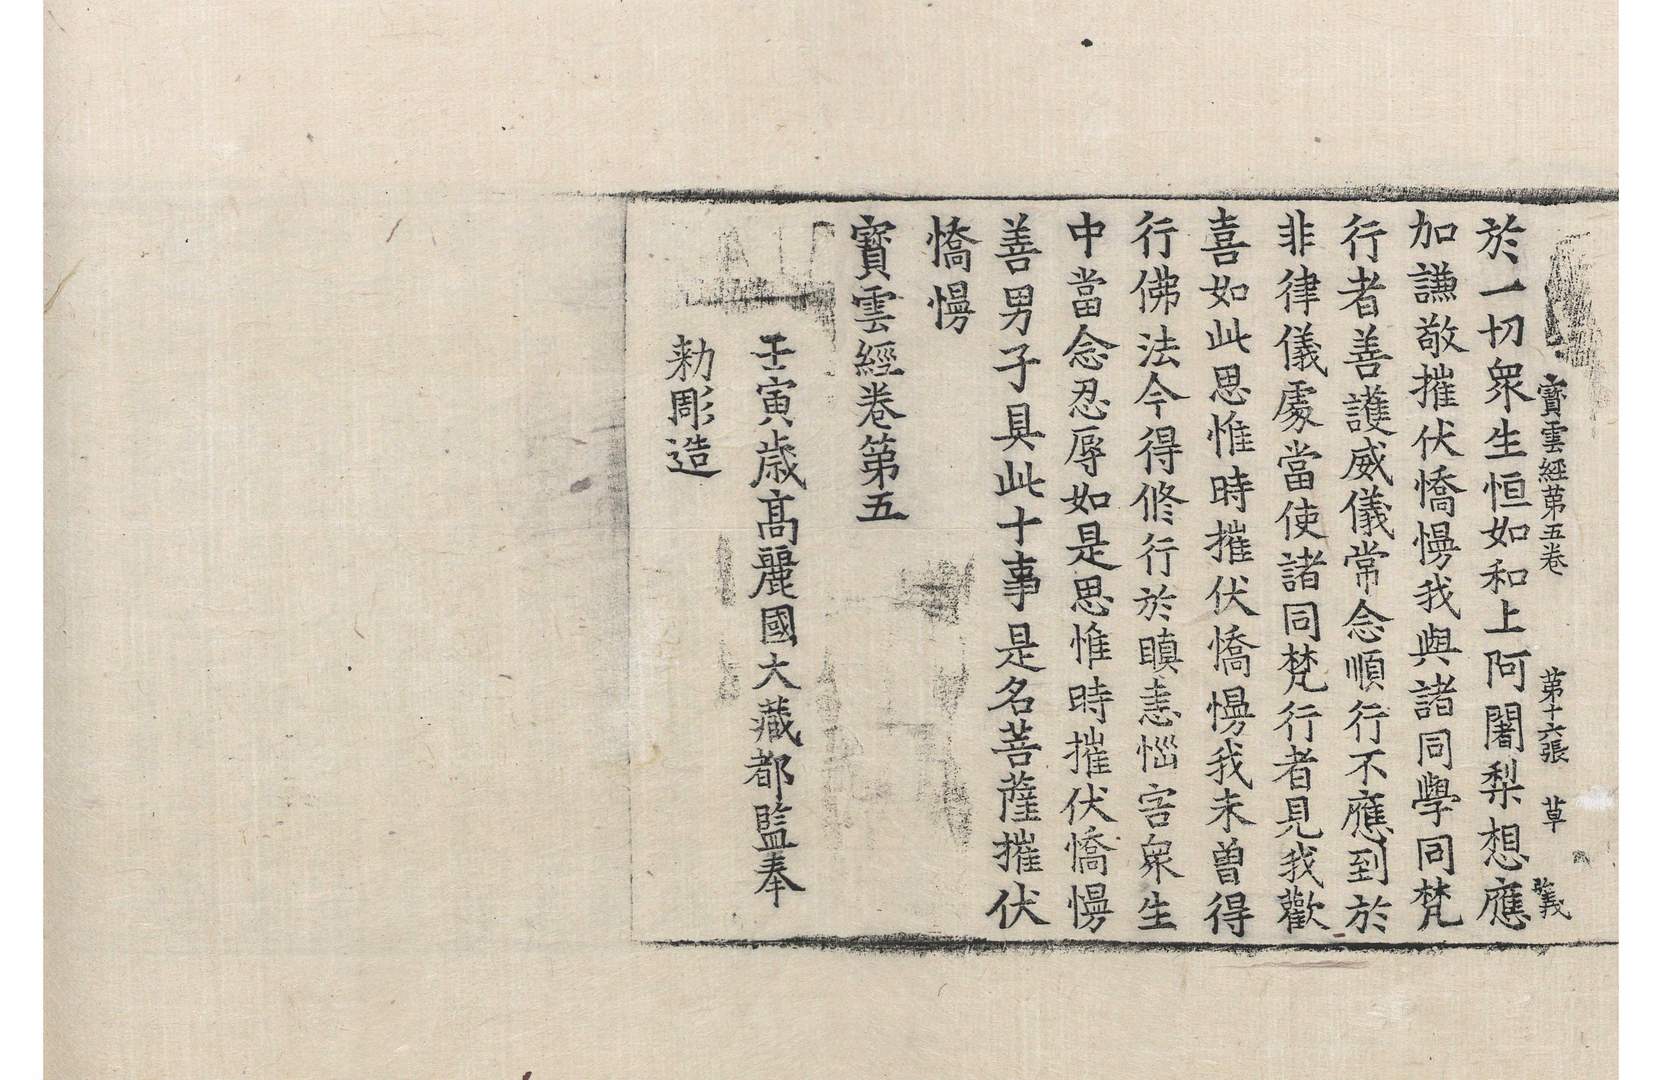 寶雲經第五卷 第十六張 草
於一切衆生恒如和上阿闍梨想應
加謙敬摧伏憍慢我與諸同學同梵
行者善護威儀常念順行不應到於
非律儀處當使諸同梵行者見我歡
喜如此思惟時摧伏憍慢我未曾得
行佛法今得修行於瞋恚惱害衆生
中當念忍辱如是思惟時摧伏憍慢
善男子具此十事是名菩薩摧伏
憍慢
寶雲經卷第五
壬寅歳髙麗國大藏都監奉
勑彫造